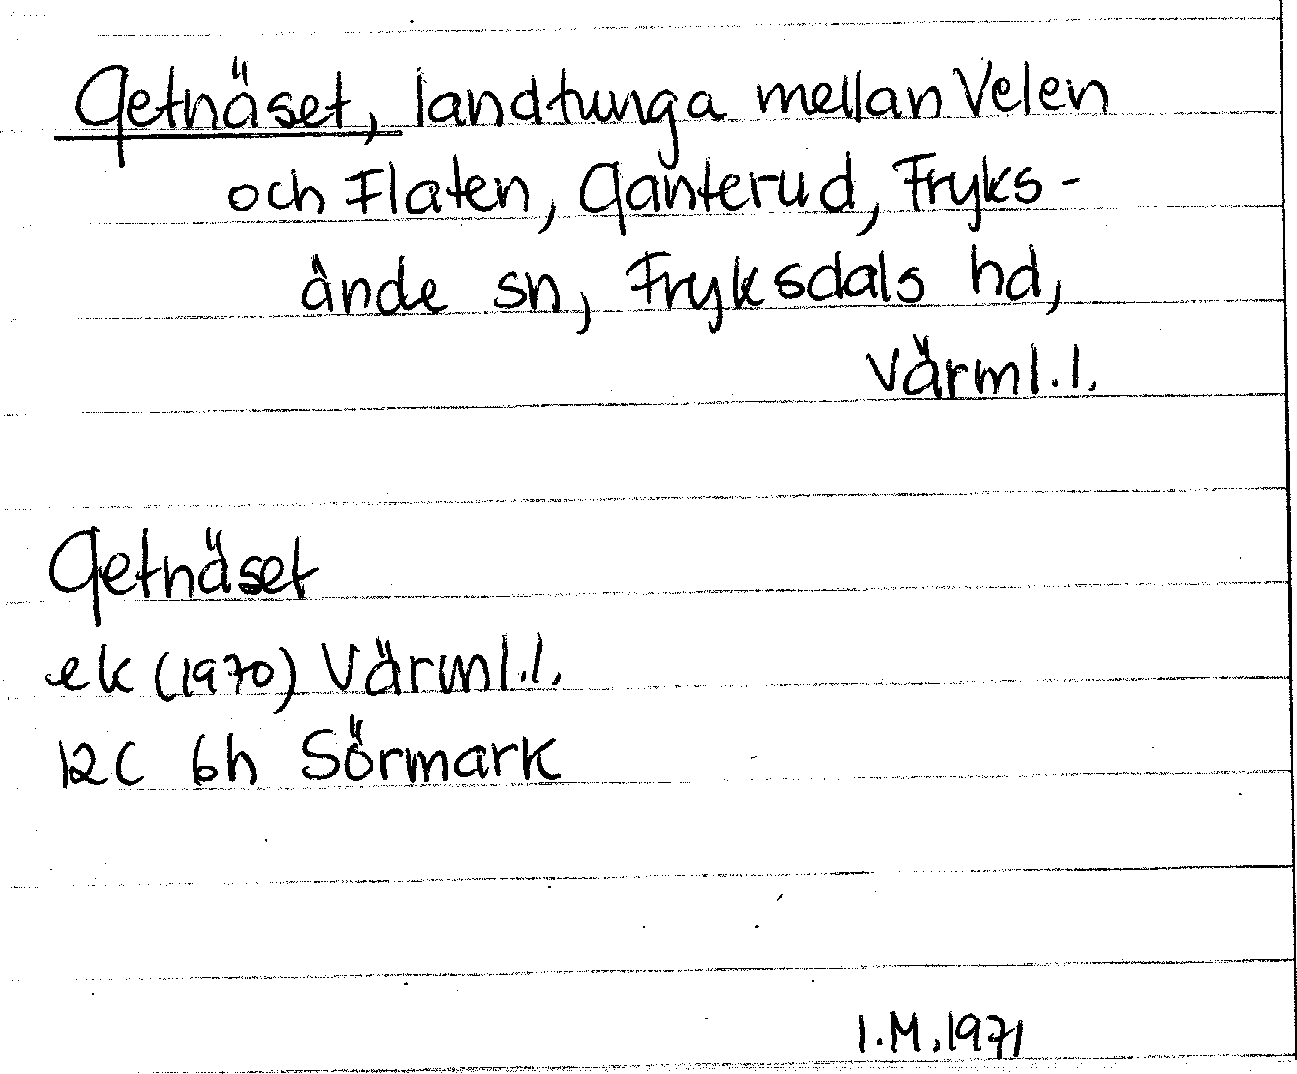 Getnäset, landtunga mellan Velen
och Flaten, Ganterud, Fryks-
ände sn, Fryksdals hd,
Värml. l.
Getnäset
ek (1970) Värml. l.
12C 6h Sörmark
I.M. 1971